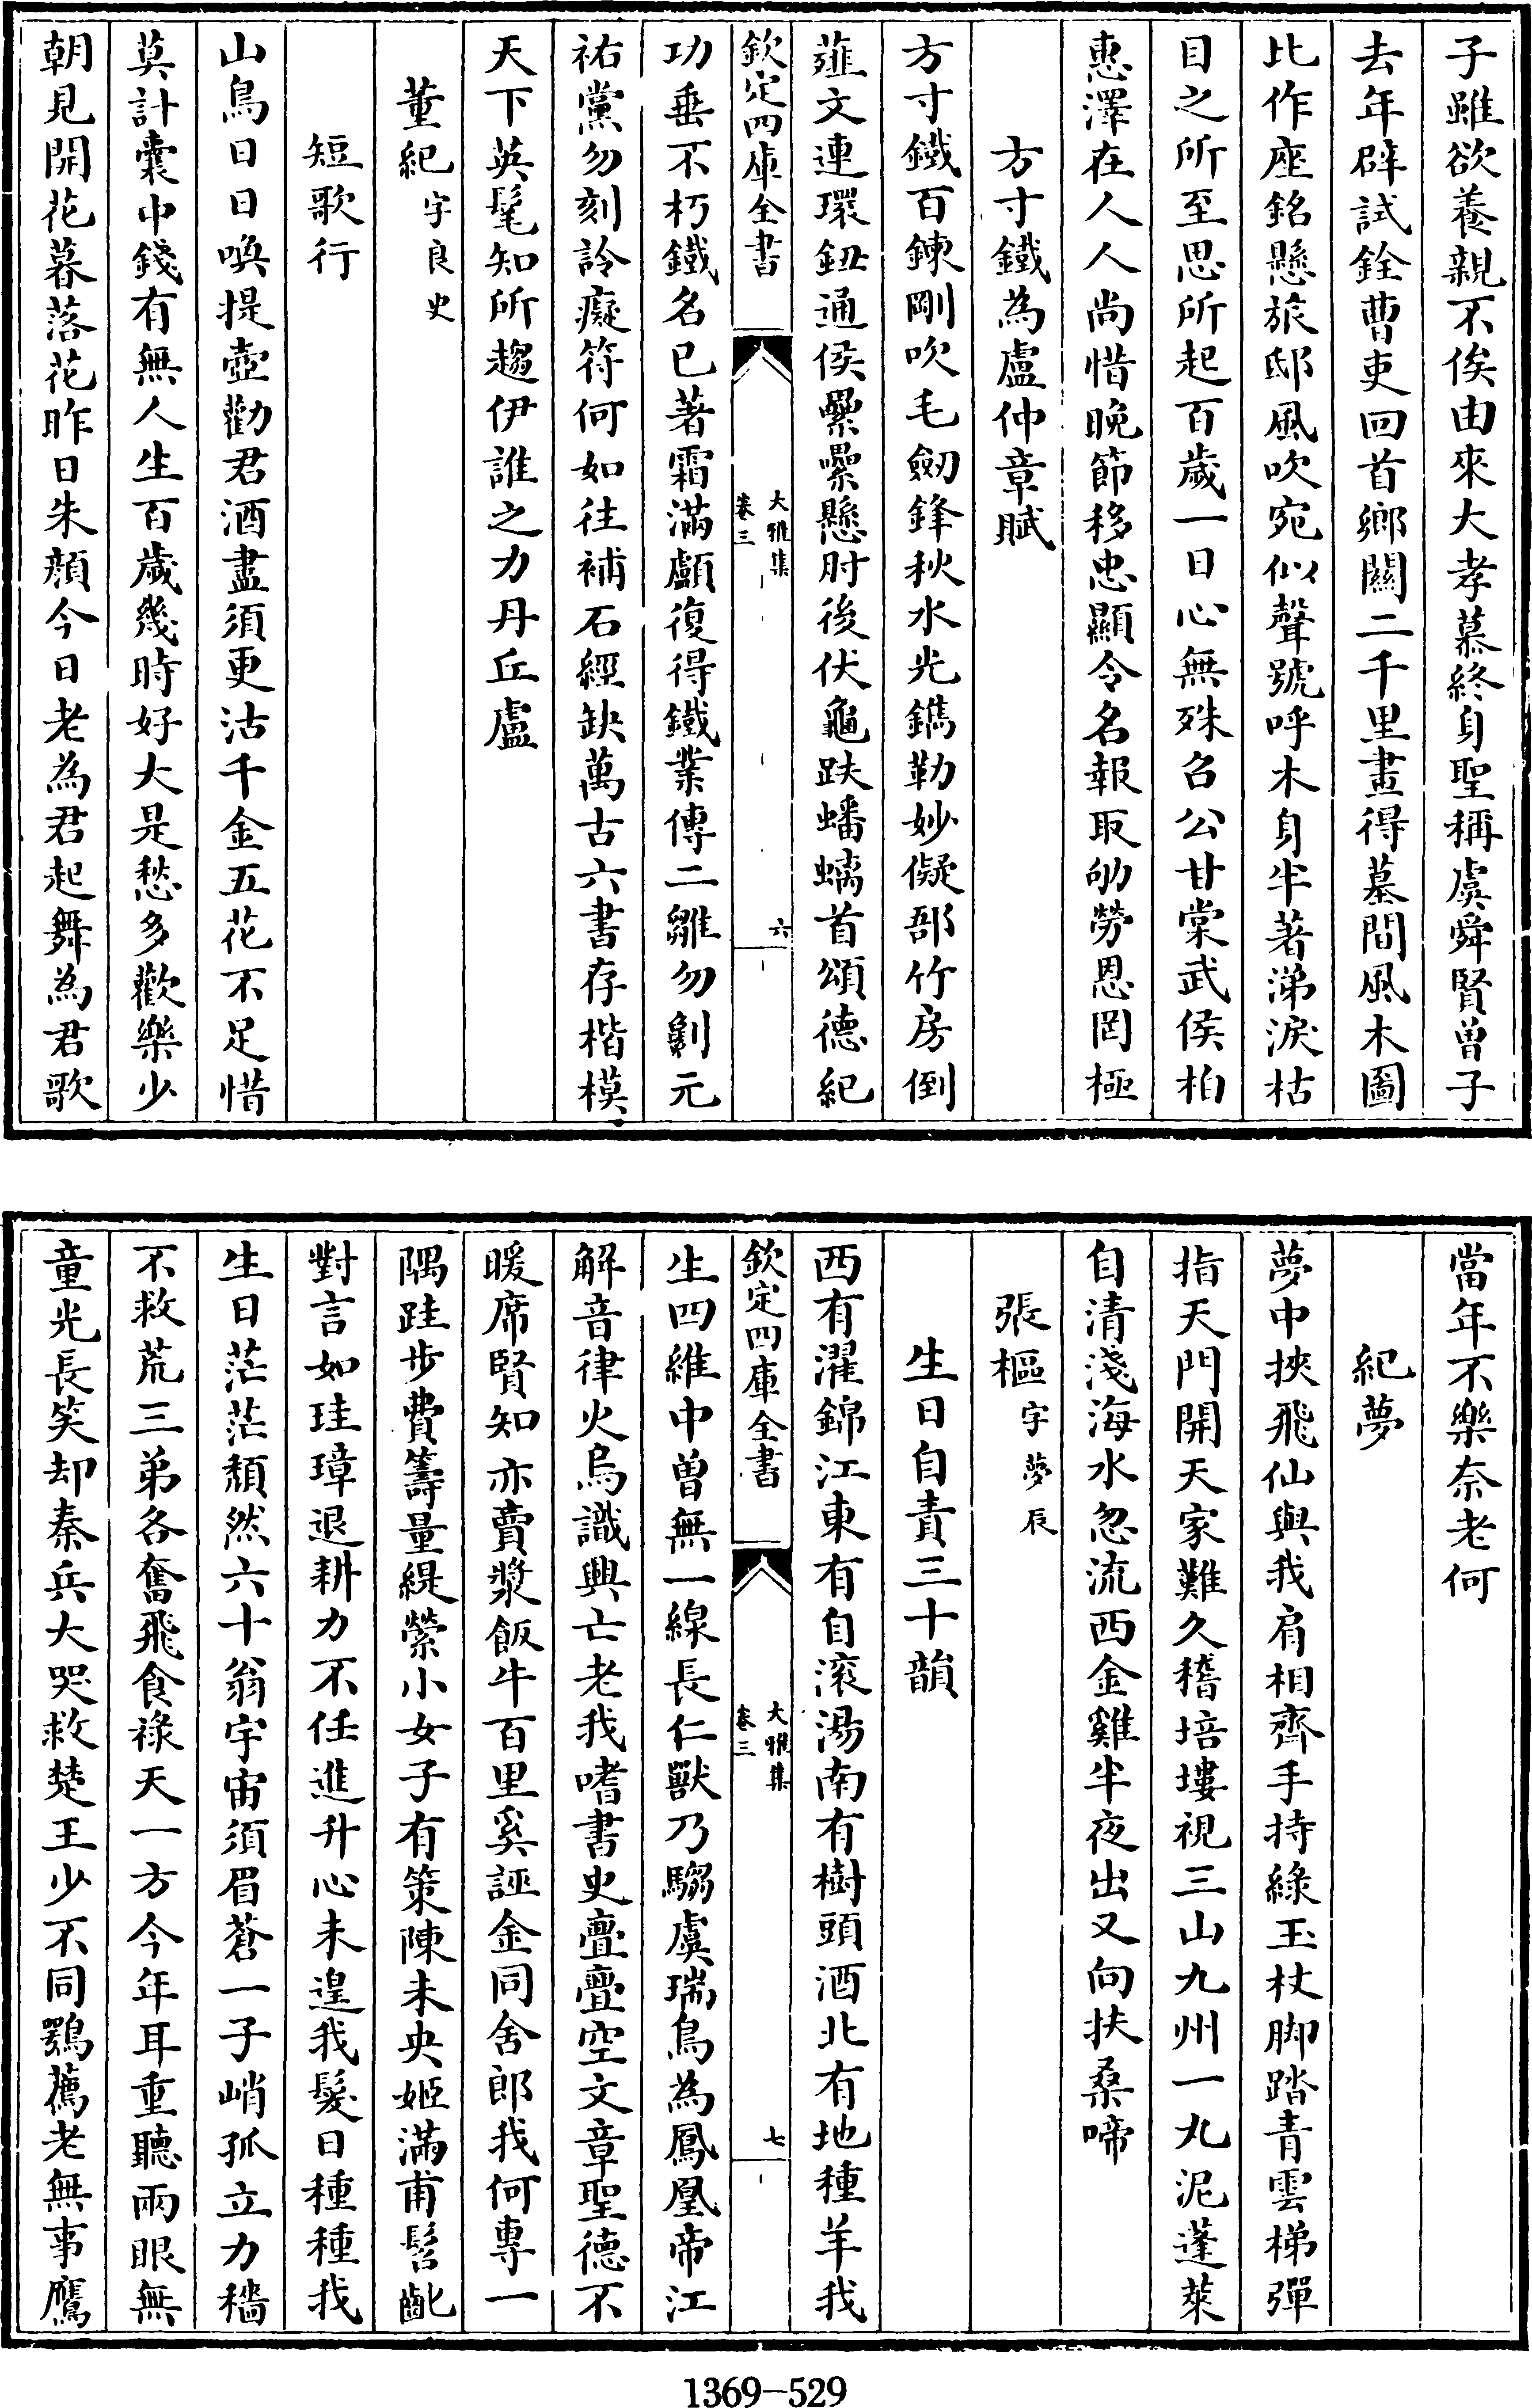 子雖欲養親不俟由來大孝慕終身聖稱虞舜賢曾子
去年辟試銓曹吏回首鄉關二千里畫得墓間風木圖
比作座銘懸旅邸風吹宛似聲號呼木身半著涕淚枯
目之所至思所起百歲一日心無殊召公甘棠武侯柏
惠澤在人人尚惜晚節移忠顯令名報取劬勞恩罔極
方寸鐵為盧仲章賦
方寸鐵百鍊剛吹毛劒鋒秋水光鐫勒妙儗郚竹房倒
薤文連環鈕通侯纍纍懸肘後伏龜趺蟠螭首頌德紀
欽定四庫全書
大雅集
卷三
六
功垂不朽鐵名已著霜滿顱復得鐵業傳二雛勿劖元
祐黨勿刻詅癡符何如往補石經缺萬古六書存楷模
天下英髦知所趨伊誰之力丹丘盧
董紀字良史
短歌行
山鳥日日喚提壺勸君酒盡須更沽千金五花不足惜
莫計囊中錢有無人生百歲幾時好大是愁多歡樂少
朝見開花暮落花昨日朱顏今日老為君起舞為君歌
當年不樂奈老何
紀夢
夢中挾飛仙與我肩相齊手持綠玉杖脚踏青雲梯彈
指天門開天家難久稽培塿視三山九州一丸泥蓬萊
自清淺海水忽流西金雞半夜出又向扶桑啼
張樞字夢辰
生日自責三十韻
西有濯錦江東有自滚湯南有樹頭酒北有地種羊我
欽定四庫全書
大雅集
卷三
七
生四維中曾無一線長仁獸乃騶虞瑞鳥為鳳凰帝江
解音律火烏識興亡老我嗜書史亹亹空文章聖德不
暖席賢知亦賣漿飯牛百里奚誣金同舍郎我何專一
隅跬步費籌量緹縈小女子有策陳未央姬滿甫髫齔
對言如珪璋退耕力不任進升心未遑我髮日種種我
生日茫茫頹然六十翁宇宙須眉蒼一子峭孤立力穡
不救荒三弟各奮飛食祿天一方今年耳重聽兩眼無
童光長笑却秦兵大哭救楚王少不同鶚薦老無事鷹
1369-529